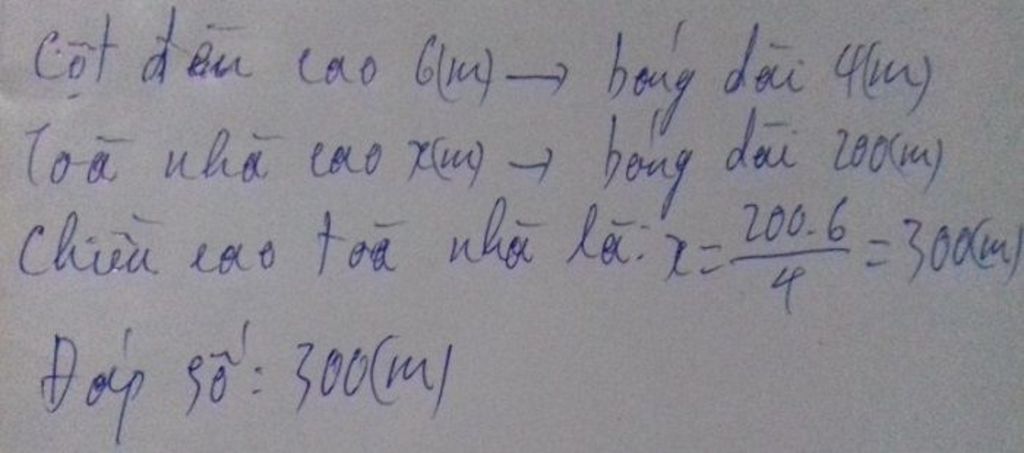 Cột đèn cao 6(m) → bóng dài 4(m)
Toà nhà cao x(m) → bóng dài 200(m)
Chiều cao toà nhà là: x = \frac{200.6}{4} = 300(m)
Đáp số: 300(m)